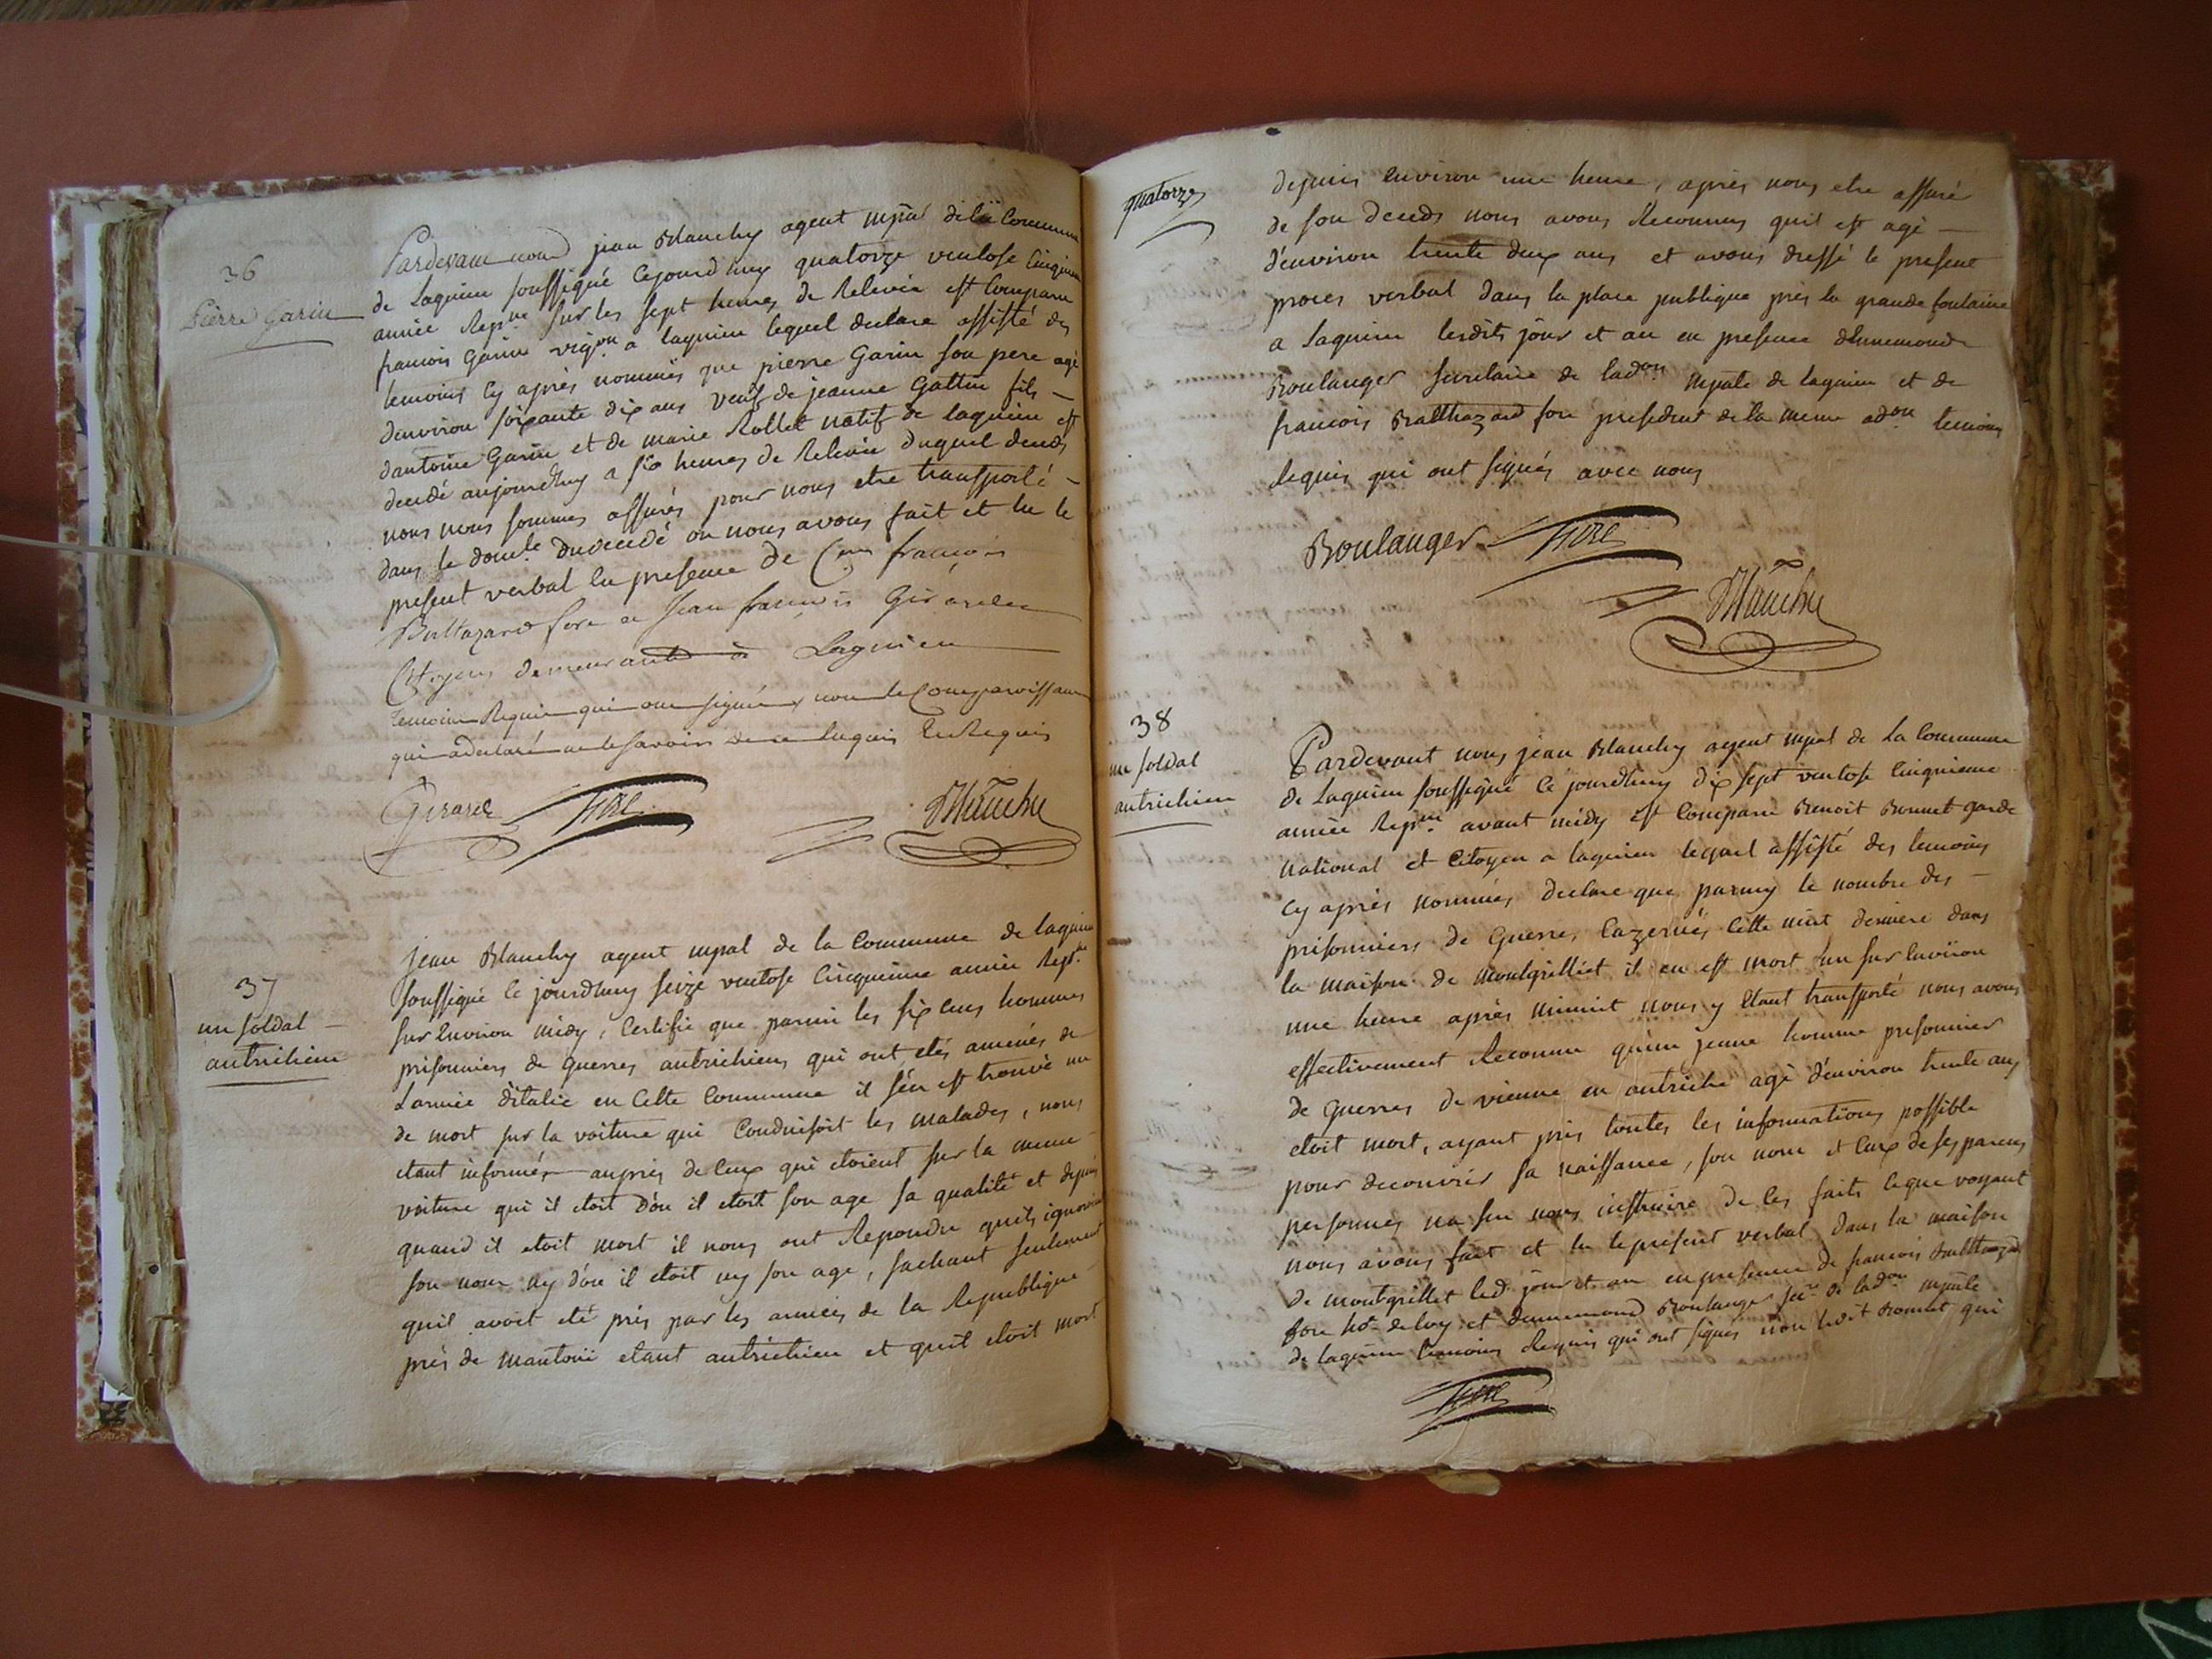 36
Pierre Garin
Pardevant nous jean Blanchy agent mpal de la Commune
de Lagnieu soussigné cejourdhuy quatorze ventose Cinquieme
année Rep.ne sur les sept heures de Relevée est Comparu
francois Garin vigon a lagnieu lequel declare assisté des
temoins cy après nommés que pierre Garin son pere agé
denviron soixante dix ans veuf de jeanne Gattin fils
dantoine Garin et de marie Rollet natif de lagnieu est
decedé aujourdhuy a six heures de Relevée duquel deceds
nous nous sommes assurés pour nous etre transporté
dans le domle du decedé ou nous avons fait et lu le
present verbal en presence de Cens francois
Baltazard fore et Jean francois Girardet
Citoyens demeurants à Lagnieu
temoins Requis qui ont signés non le Comparoissant
qui a declaré ne le savoir de ce Enquis Et Requis
Girard fore Blanchy
37
un soldat
autrichien
jean Blanchy agent mpal de la Commune de lagnieu
soussigné ce jourdhuy seize ventose Cinquieme année Rep.ne
sur Environ midy, Certifie que parmi les six cens hommes
prisonniers de guerres autrichiens qui ont etés amenés de
L'armée d'italie en Cette Commune il s'en est trouvé un
de mort sur la voiture qui Conduisoit les malades, nous
etant informés auprès de Ceux qui etoient sur la meme
voiture qui il etoit d'ou il etoit son age sa qualité et depuis
quand il etoit mort il nous ont Repondu quils ignoroient
son nom ny d'ou il etoit ny son age, sachant seulement
quil avoit eté pris par les armées de la Republique
près de mantoüe etant autrichien et quil etoit mort
quatorze
depuis environ une heure, après nous etre assuré
de son deceds nous avons Reconnus quil est agé
d'environ trente deux ans et avons dressé le present
proces verbal dans la place publique près la grande fontaine
a lagnieu lesdits jour et an en presence dEnnemond
Boulanger secretaire de ladon mpale de lagnieu et de
francois Balthazard fore president de la meme adon temoins
Requis qui ont signés avec nous
Boulanger fore
Blanchy
38
un soldat
autrichien
Pardevant nous jean Blanchy agent mpal de la Commune
de Lagnieu soussigné Ce jourdhuy dix sept ventose Cinquieme
année Rep.ne avant midy est Comparu Benoit Bonnet garde
national et Citoyen a lagnieu lequel assisté des temoins
cy après nommés declare que parmy le nombre des
prisonniers de Guerres Cazernés Cette nuit derniere dans
la maison de Montgrilliet il en est mort un sur Environ
une heure après minuit nous y Etant transporté nous avons
effectivement Reconnu qu'un jeune homme prisonnier
de guerres de vienne en autriche agé d'environ trente ans
etoit mort, ayant pris toutes les informations possible
pour decouvrir sa naissance, son nom et Ceux de ses parens
personnes na su nous instruire de Ces faits Ceque voyant
nous avons fait et lu le present verbal dans la maison
de montgrillet led. jour et an en presence de francois Balthazard
fore et dennemond Boulanger secre de ladon mpale
de lagnieu temoins Requis qui ont signés non ledit Bonnet qui
fore